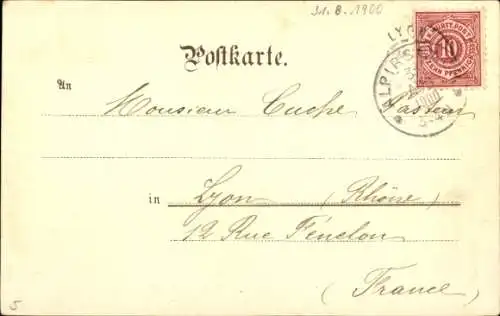 31. 8. 1900
Postkarte.
10
ZEHN PFENNIG
ALPIRSB
1900
An Monsieur Cuche, Pasteur
in Lyon (Rhône)
12 Rue Fénelon
(France)
5